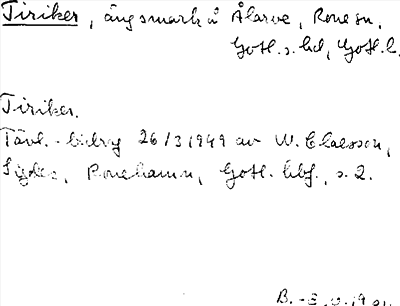 Tiriker, ängsmark å Ålarve, Rone sn,
Gotl. s. hd, Gotl. l.
Tiriker.
Tävl.-bidrag 26/3 1949 av W. Claesson,
Ronehamn, Gotl. hbf., s. 2.